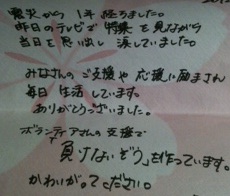 震災から1年経ちました。
昨日のテレビで特集を見ながら
当日を思い出し 涙していました。
みなさんのご支援や応援に励まされ
毎日生活しています。
ありがとうございました。
ボランティアさんの支援で
負けないぞう」を作っています。
かわいがってください。